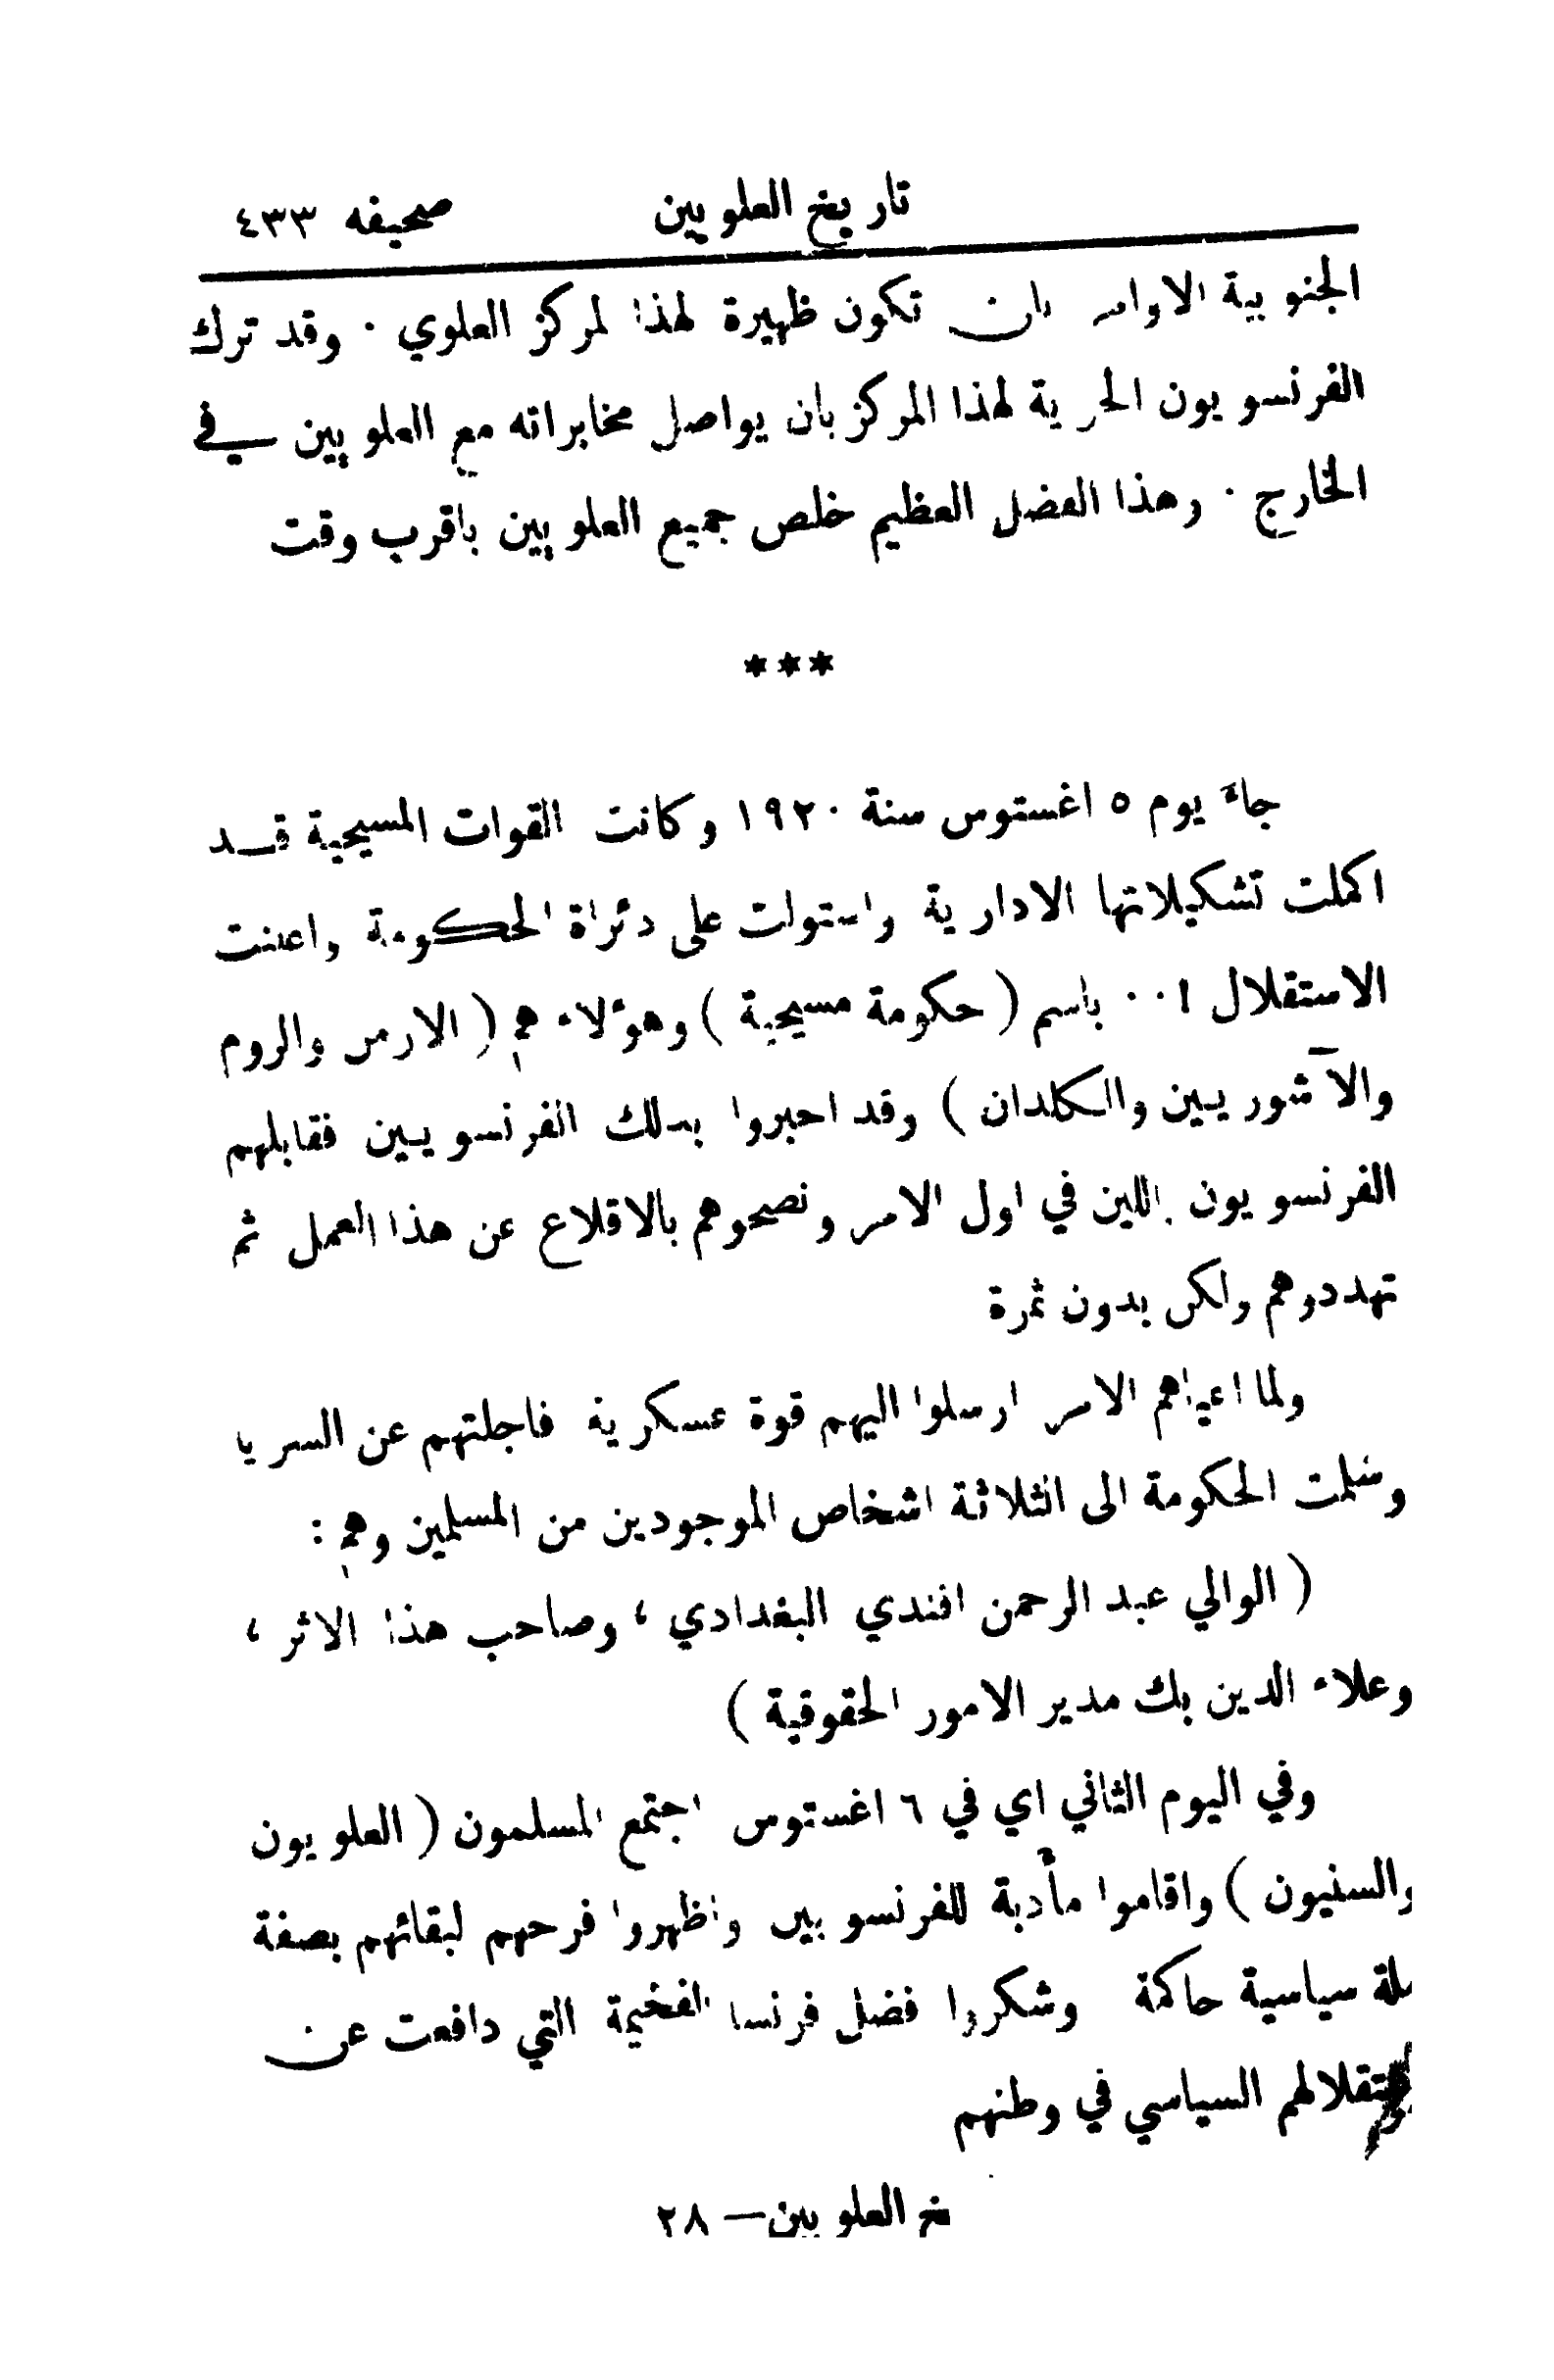 تاريخ العلويين صحيفه ٤٣٣
الجنوبية الاوامر بان تكون ظهيرة لهذا لمركز العلوي · وقد ترك
الفرنسويون الحرية لهذا المركز بان يواصل مخابراته مع العلويين في
الخارج · وهذا الفضل العظيم خلص جميع العلويين باقرب وقت
***
جاءَ يوم ٥ اغستوس سنة ١٩٢٠ وكانت القوات المسيحية قد
اكملت تشكيلاتها الادارية واستولت على دئراة الحكومة واعلنت
الاستقلال !·· باسم ( حكومة مسيحية ) وهؤلاء هم ( الارمن والروم
والآشوريين والكلدان ) وقد اخبروا بذلك الفرنسويين فقابلهم
الفرنسويون باللين في اول الامر ونصحوهم بالاقلاع عن هذا العمل ثم
تهددوهم ولكن بدون ثمرة
ولما اعياهم الامر ارسلوا اليهم قوة عسكرية فاجلتهم عن السرايا
وسلمت الحكومة الى الثلاثة اشخاص الموجودين من المسلمين وهم :
( الوالي عبد الرحمن افندي البغدادي ، وصاحب هذا الاثر ،
وعلاء الدين بك مدير الامور الحقوقية )
وفي اليوم الثاني اي في ٦ اغستوس اجتمع المسلمون ( العلويون
والسنيون ) واقاموا مأدبة للفرنسويين واظهروا فرحهم لبقائهم بصفة
ملة سياسية حاكمة وشكروا فضل فرنسا الفخيمة التي دافعت عن
استقلالهم السياسي في وطنهم
يخ العلويين — ٢٨